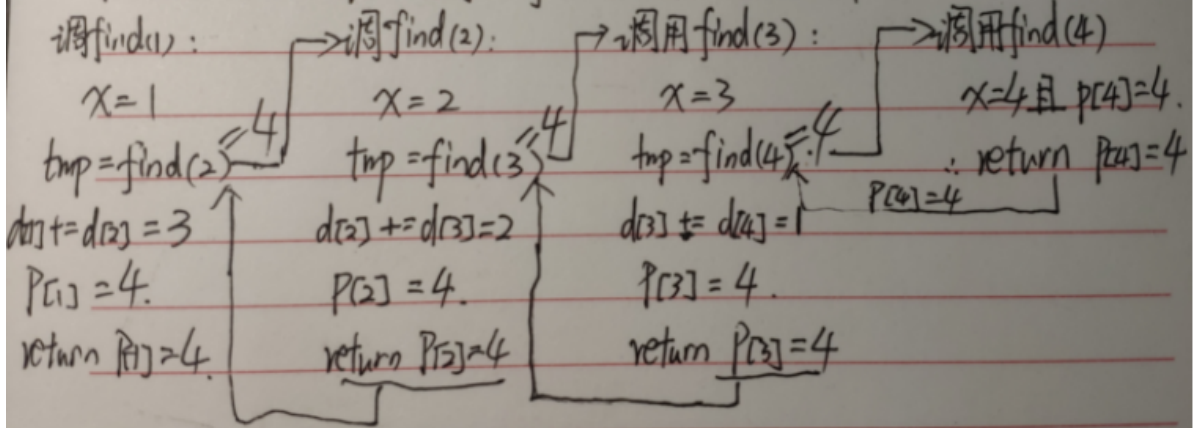 调find(1):
x=1
tmp=find(2)=4
d[1]+=d[2]=3
P[1]=4.
return P[1]=4.
调find(2):
x=2
tmp=find(3)=4
d[2]+=d[3]=2
P[2]=4.
return P[2]=4
调用find(3):
x=3
tmp=find(4)=4
d[3]+=d[4]=1
P[3]=4.
return P[3]=4
调用find(4)
x=4且p[4]=4.
∴return P[4]=4
P[4]=4